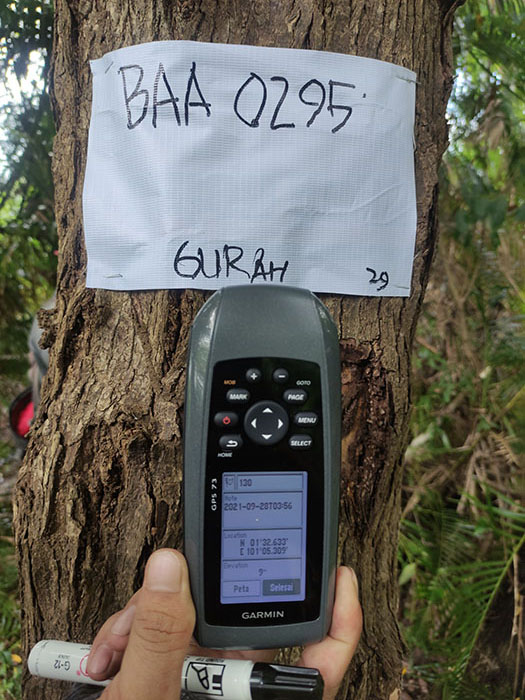 BAA 0295
GURAH
29
MOB
+
-
GOTO
MARK
PAGE
MENU
HOME
SELECT
GPS 73
130
Note
2021-09-28T03:56
Location
N 01°32.633'
E 101°05.309'
Elevation
9m
Peta
Selesai
GARMIN
G-12